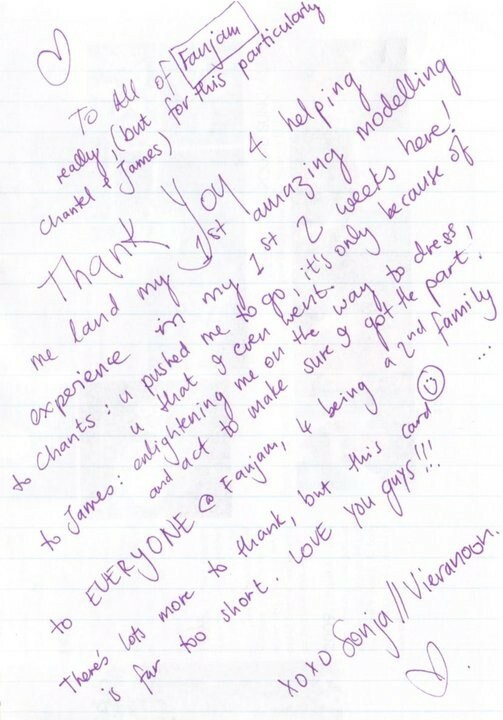 To All of Fanjam
really, (but for this particularly
chantel & James)
Thank You 4 helping
me land my 1st amazing modelling
experience in my 1st 2 weeks here!
to Chants: u pushed me to go, it's only because of
u that I even went.
to James: enlightening me on the way to dress,
and act to make sure I got the part.
to EVERYONE @ Fanjam, 4 being a 2nd family
...
There's lots more to thank, but this card
is far too short. LOVE YOU guys!!!
xoxo Sonja // Vieranoon.